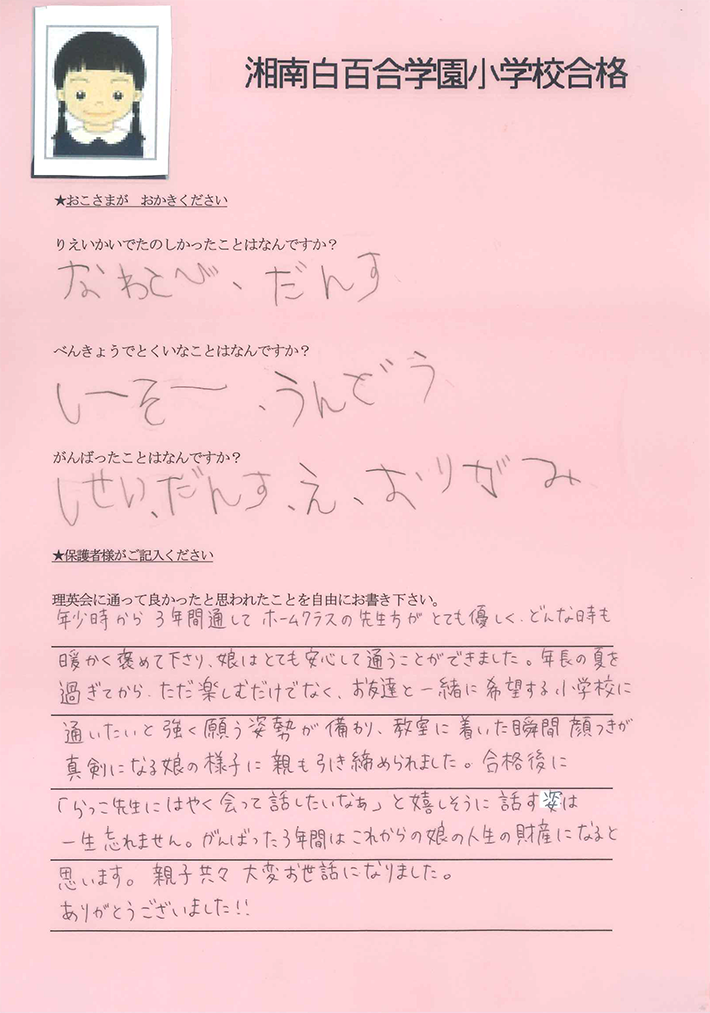 湘南白百合学園小学校合格
★おこさまが　おかきください
りえいかいでたのしかったことはなんですか？
なわとび、だんす
べんきょうでとくいなことはなんですか？
しーそー、うんどう
がんばったことはなんですか？
しせい、だんす、え、おりがみ
★保護者様がご記入ください
理英会に通って良かったと思われたことを自由にお書き下さい。
年少時から3年間通してホームクラスの先生方がとても優しく、どんな時も
暖かく褒めて下さり、娘はとても安心して通うことができました。年長の夏を
過ぎてから、ただ楽しむだけでなく、お友達と一緒に希望する小学校に
通いたいと強く願う姿勢が備わり、教室に着いた瞬間顔つきが
真剣になる娘の様子に親も引き締められました。合格後に
「らっこ先生にはやく会って話したいなぁ」と嬉しそうに話す姿は
一生忘れません。がんばった3年間はこれからの娘の人生の財産になると
思います。親子共々大変お世話になりました。
ありがとうございました!!